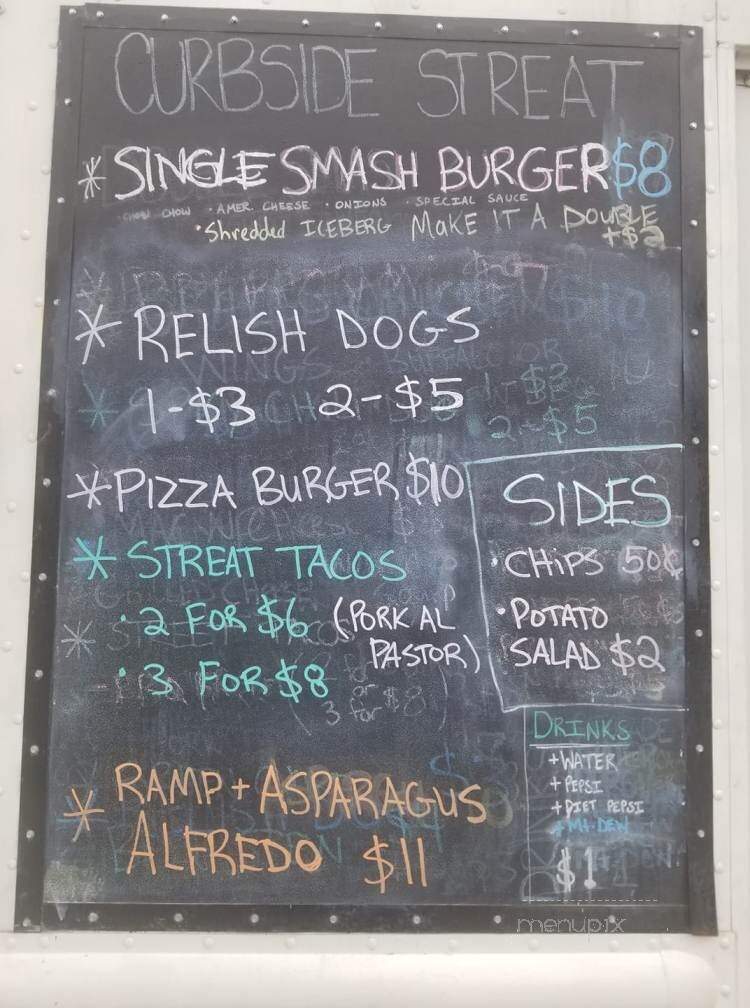 CURBSIDE STREAT
* SINGLE SMASH BURGER $8
CHOW CHOW • AMER. CHEESE • ONIONS • SPECIAL SAUCE
• Shredded ICEBERG MAKE IT A DOUBLE
+$2
* RELISH DOGS
1-$3 2-$5
* PIZZA BURGER $10
* STREAT TACOS
• 2 FOR $6 (PORK AL
PASTOR)
• 3 FOR $8
3 for $8
* RAMP + ASPARAGUS
ALFREDO $11
SIDES
• CHIPS 50¢
• POTATO
SALAD $2
DRINKS
+ WATER
+ PEPSI
+ DIET PEPSI
+ Mt. DEW
$1
menupix